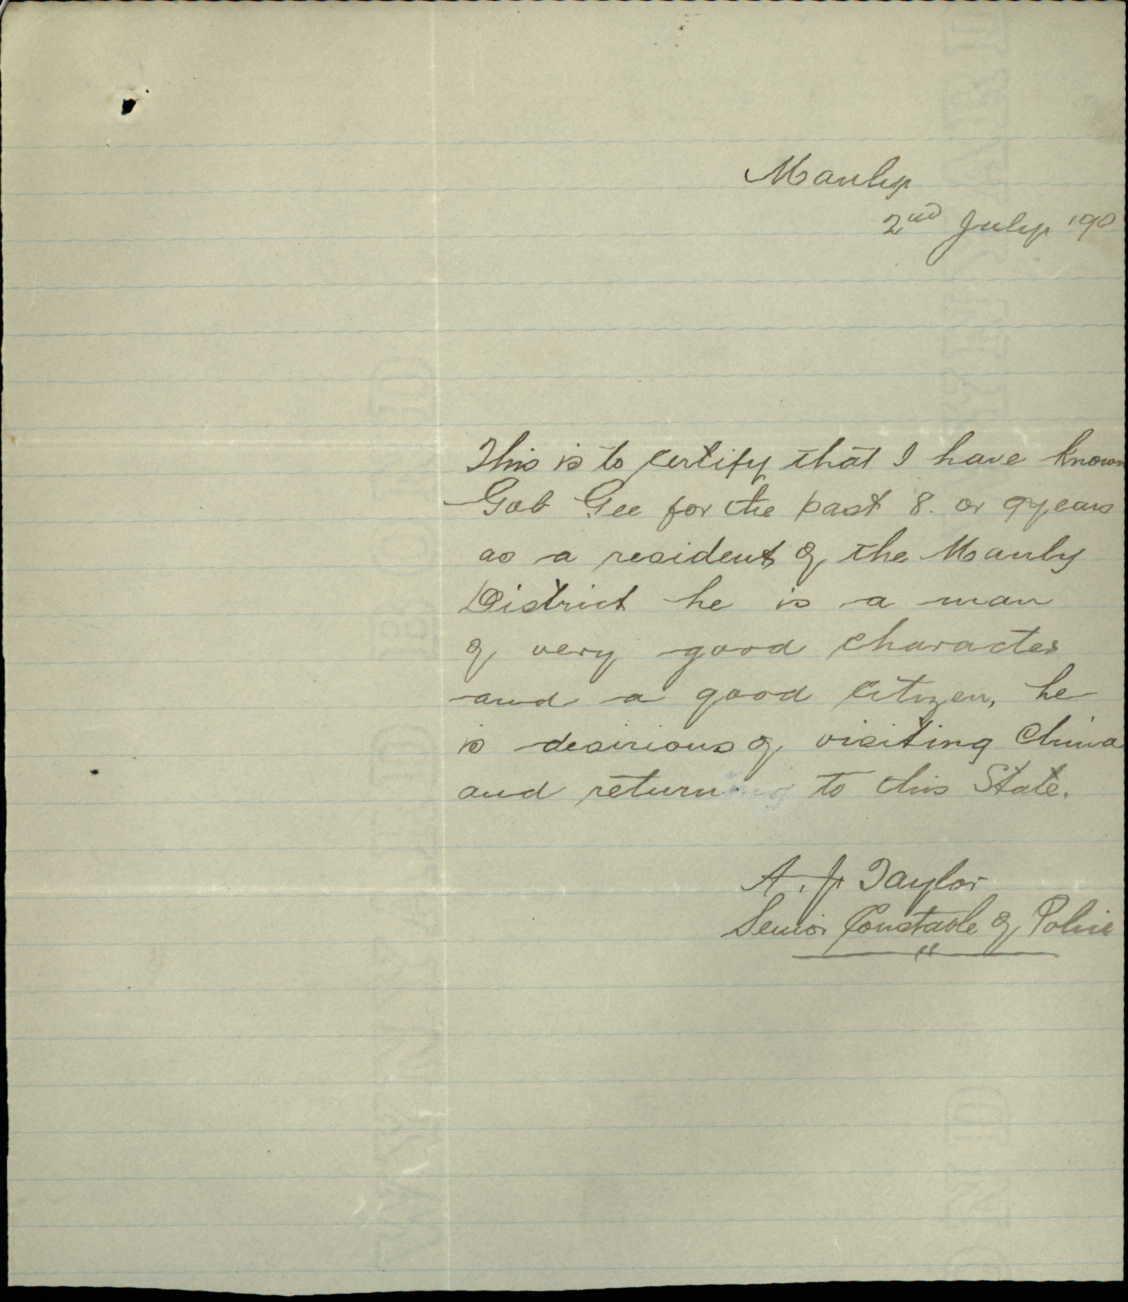 Manly
2nd July '190
This is to certify that I have known
Gob Gee for the past 8. or 9 years
as a resident of the Manly
District he is a man
of very good character
and a good citizen, he
is desirious of visiting China
and returning to this State.
A. J. Taylor
Senior Constable of Police